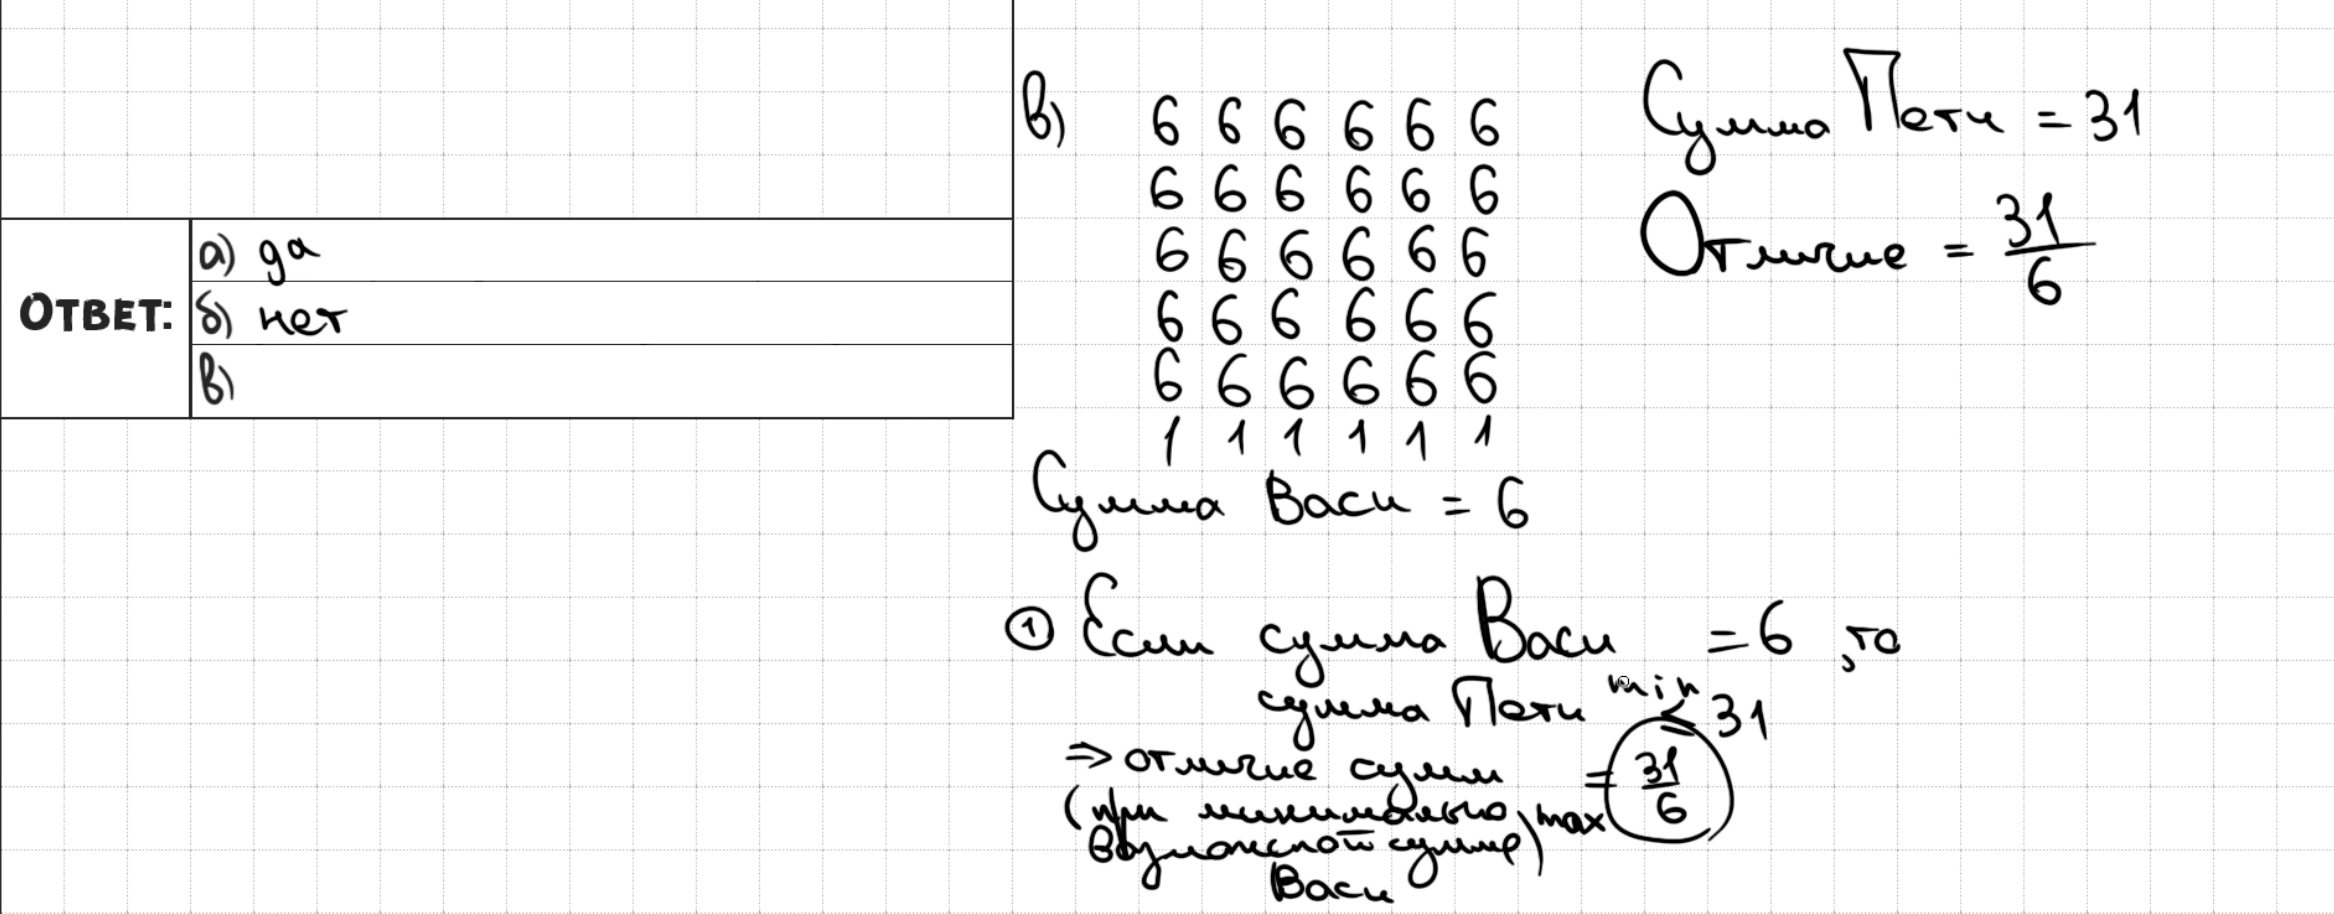 ОТВЕТ:
а) да
б) нет
в)
в)
6 6 6 6 6 6
6 6 6 6 6 6
6 6 6 6 6 6
6 6 6 6 6 6
6 6 6 6 6 6
1 1 1 1 1 1
Сумма Васи = 6
Сумма Пети = 31
Отличие = 31/6
① Если сумма Васи = 6, то
сумма Пети min ≤ 31
⇒ отличие сумм = 31/6
(при минимально max
возможной сумме)
Васи